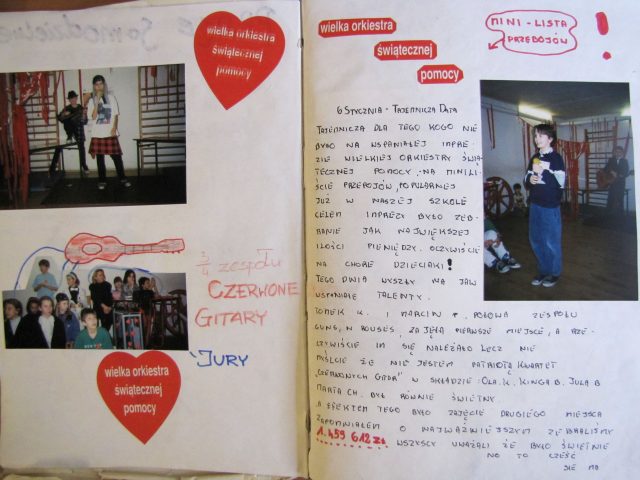 wielka orkiestra
świątecznej
pomocy
3/4 zespołu
CZERWONE
GITARY
JURY
wielka orkiestra
świątecznej
pomocy
wielka orkiestra
świątecznej
pomocy
MINI - LISTA
PRZEBOJÓW
!
6 STYCZNIA - TAJEMNICZA DATA
TAJEMNICZA DLA TEGO KOGO NIE
BYŁO NA WSPANIAŁEJ IMPRE-
ZIE WIELKIEJ ORKIESTRY ŚWIĄ-
TECZNEJ POMOCY, -NA MINI LI-
ŚCIE PRZEBOJÓW, POPULARNEJ
JUŻ W NASZEJ SZKOLE
CELEM IMPREZY BYŁO ZEB-
RANIE JAK NAJWIĘKSZEJ
ILOŚCI PIENIĘDZY. OCZYWIŚCIE
NA CHORE DZIECIAKI!
TEGO DNIA WYSZŁY NA JAW
WSPANIAŁE TALENTY.
TOMEK K. I MARCIN P. POŁOWA ZESPOŁU
GUNS, N ROUSES, ZAJĘŁA PIERWSZE MIEJSCE, A RZE-
CZYWIŚCIE IM SIĘ NALEŻAŁO LECZ NIE
MYŚLCIE ŻE NIE JESTEM PATRIOTĄ KWARTET
"CZERWONYCH GITAR" W SKŁADZIE: OLA.K. KINGA B. JULA B
MARTA CH. BYŁ RÓWNIE ŚWIETNY.
A EFEKTEM TEGO BYŁO ZAJĘCIE DRUGIEGO MIEJSCA
ZAPOMNIAŁEM O NAJWAŻNIEJSZYM ZEBRALIŚMY
1.459 612 ZŁ WSZYSCY UWAŻALI ŻE BYŁO ŚWIETNIE
NO TO CZEŚĆ